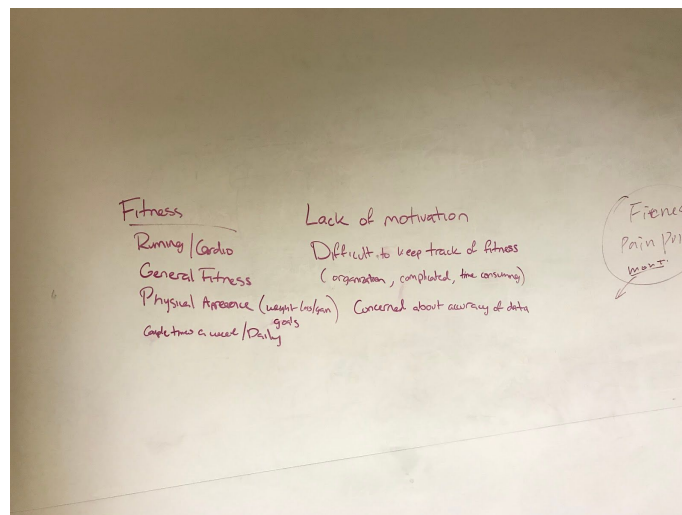 Fitness
Running/Cardio
General Fitness
Physical Apperence (weight loss/gain goals)
Couple times a week/Daily
Lack of motivation
Difficult to keep track of fitness
(organization, complicated, time consuming)
Concerned about accuracy of data
Pain